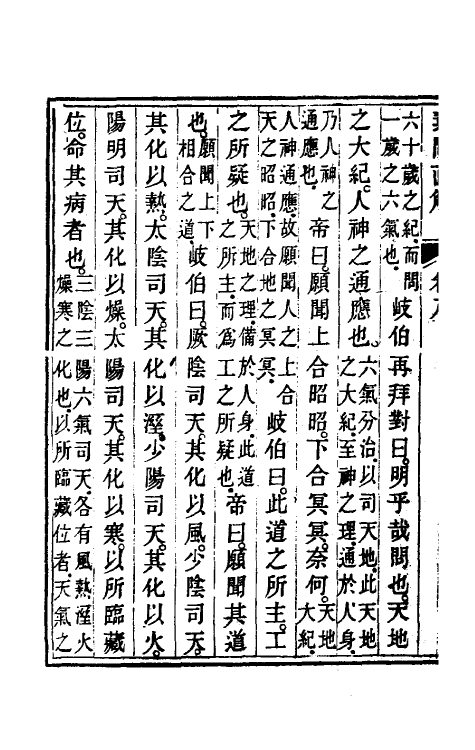 六十歲之紀而間一歲之六氣也。岐伯再拜對曰。明乎哉問也。天地
之大紀。人神之通應也。六氣分治。以司天地。此天地之大紀。至神之理。通於人身。
乃人神之通應也。帝曰。願聞上合昭昭。下合冥冥。奈何。天地大紀。
人神通應。故願聞人之上合天之昭昭。下合地之冥冥。岐伯曰。此道之所主。工
之所疑也。天地之理。備於人身。此道之所主。而爲工之所疑也。帝曰。願聞其道
也。願聞上下相合之道。岐伯曰。厥陰司天。其化以風。少陰司天。
其化以熱。太陰司天。其化以溼。少陽司天。其化以火。
陽明司天。其化以燥。太陽司天。其化以寒。以所臨藏
位。命其病者也。三陰三陽六氣司天。各有風熱溼火燥寒之化也。以所臨藏位者。天氣之